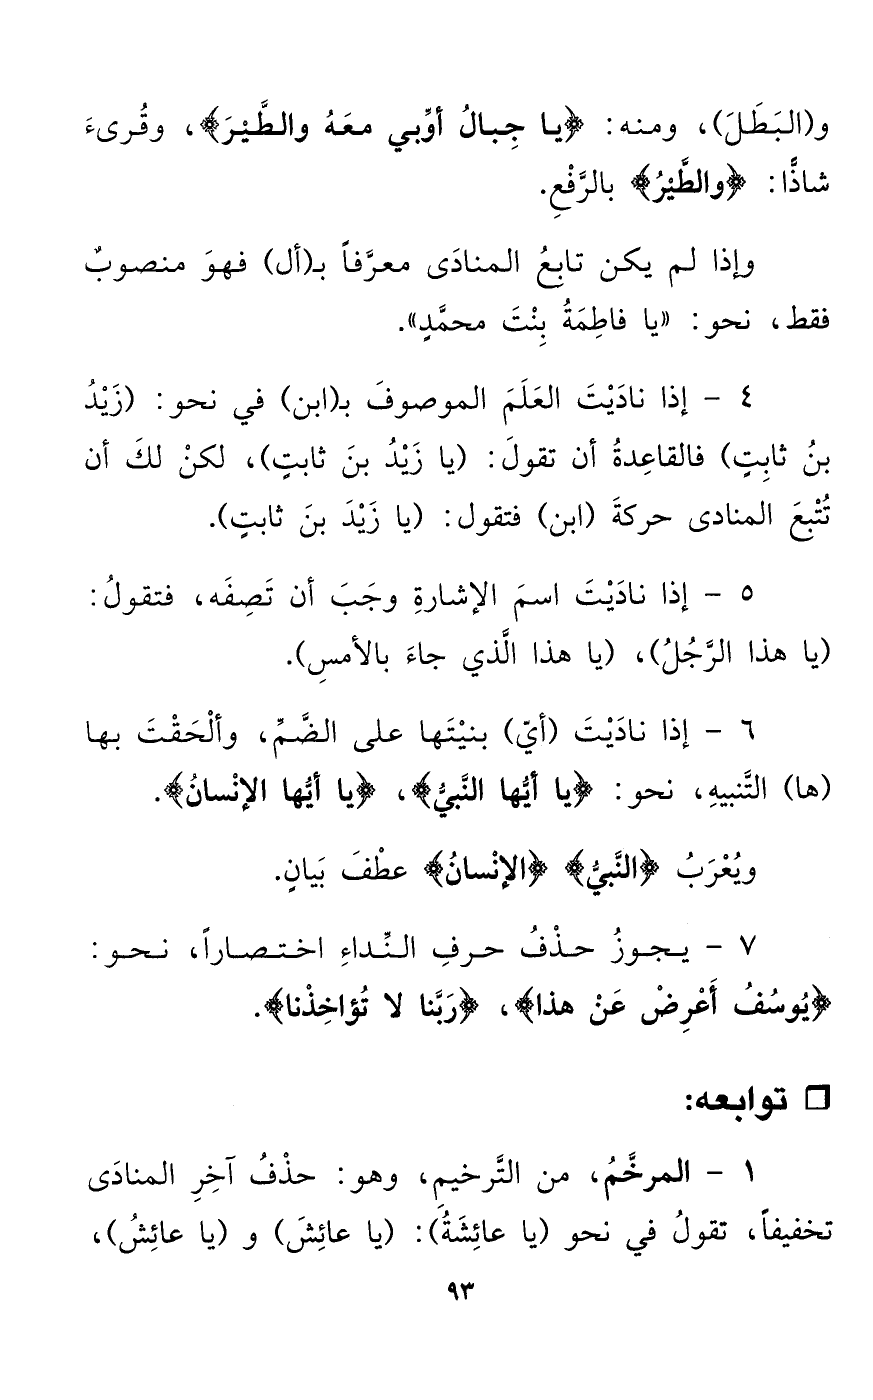 و(البَطَلَ)، ومنه: ﴿يا جِبالُ أوِّبي معَهُ والطَّيْرَ﴾، وقُرىءَ
شاذًّا: ﴿والطَّيْرُ﴾ بالرَّفْعِ.
وإذا لم يكن تابِعُ المنادَى معرَّفاً بـ(أل) فهوَ منصوبٌ
فقط، نحو: «يا فاطِمَةُ بِنْتَ محمَّدٍ».
٤ - إذا نادَيْتَ العَلَمَ الموصوفَ بـ(ابن) في نحو: (زَيْدُ
بنُ ثابِتٍ) فالقاعِدةُ أن تقولَ: (يا زَيْدُ بنَ ثابتٍ)، لكنْ لكَ أن
تُتْبِعَ المنادى حركةَ (ابن) فتقول: (يا زَيْدَ بنَ ثابتٍ).
٥ - إذا نادَيْتَ اسمَ الإشارةِ وجَبَ أن تَصِفَه، فتقولُ:
(يا هذا الرَّجُلُ)، (يا هذا الَّذي جاءَ بالأمسِ).
٦ - إذا نادَيْتَ (أيّ) بنيْتَها على الضَّمِّ، وألْحَقْتَ بها
(ها) التَّنبيهِ، نحو: ﴿يا أيُّها النَّبيُّ﴾، ﴿يا أيُّها الإنْسانُ﴾.
ويُعْرَبُ ﴿النَّبيُّ﴾ ﴿الإنْسانُ﴾ عطْفَ بَيانٍ.
٧ - يـجـوزُ حـذْفُ حـرفِ الـنِّـداءِ اخـتـصـاراً، نـحـو:
﴿يُوسُفُ أَعْرِضْ عَنْ هذا﴾، ﴿رَبَّنا لا تُؤاخِذْنا﴾.
❒ توابعه:
١ - المرخَّمُ، من التَّرخيمِ، وهو: حذْفُ آخِرِ المنادَى
تخفيفاً، تقولُ في نحو (يا عائِشَةُ): (يا عائِشَ) و (يا عائِشُ)،
٩٣